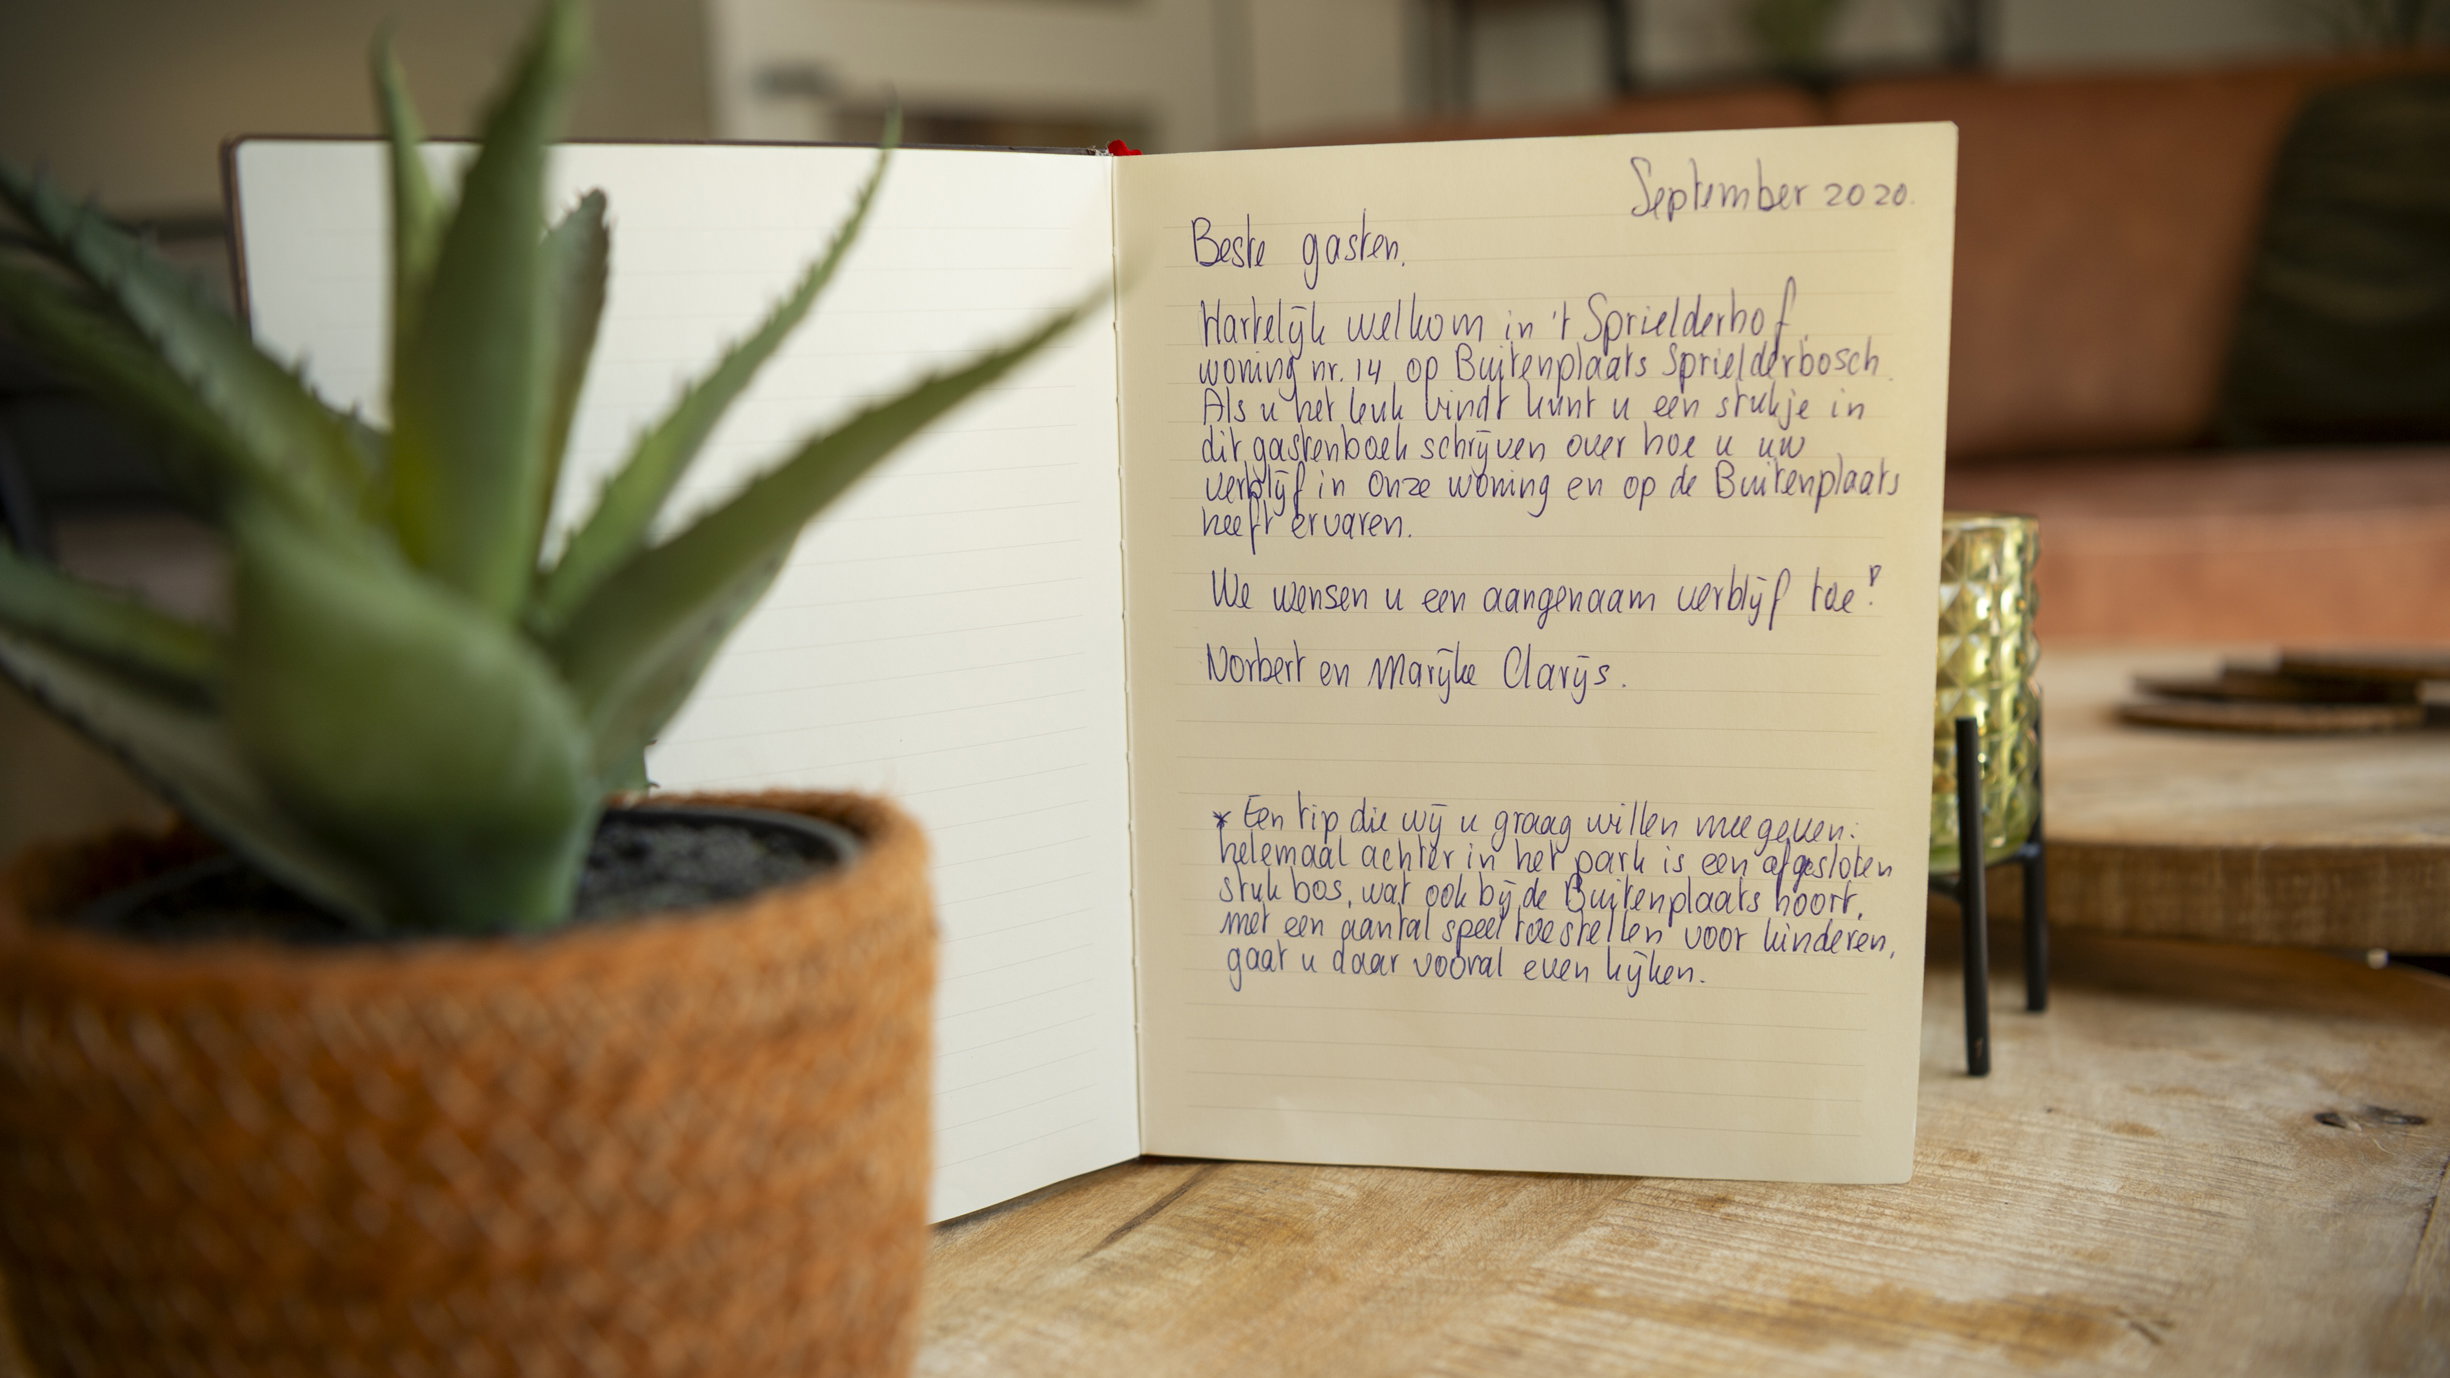 September 2020.
Beste gasten.
Hartelijk welkom in 't Sprielderhof.
woning nr. 14 op Buitenplaats Sprielderbosch.
Als u het leuk vindt kunt u een stukje in
dit gastenboek schrijven over hoe u uw
verblijf in onze woning en op de Buitenplaats
heeft ervaren.
We wensen u een aangenaam verblijf toe!
Norbert en Marijke Clarijs.
* Een tip die wij u graag willen meegeven:
helemaal achter in het park is een afgesloten
stuk bos, wat ook bij de Buitenplaats hoort,
met een aantal speeltoestellen voor kinderen,
gaat u daar vooral even kijken.